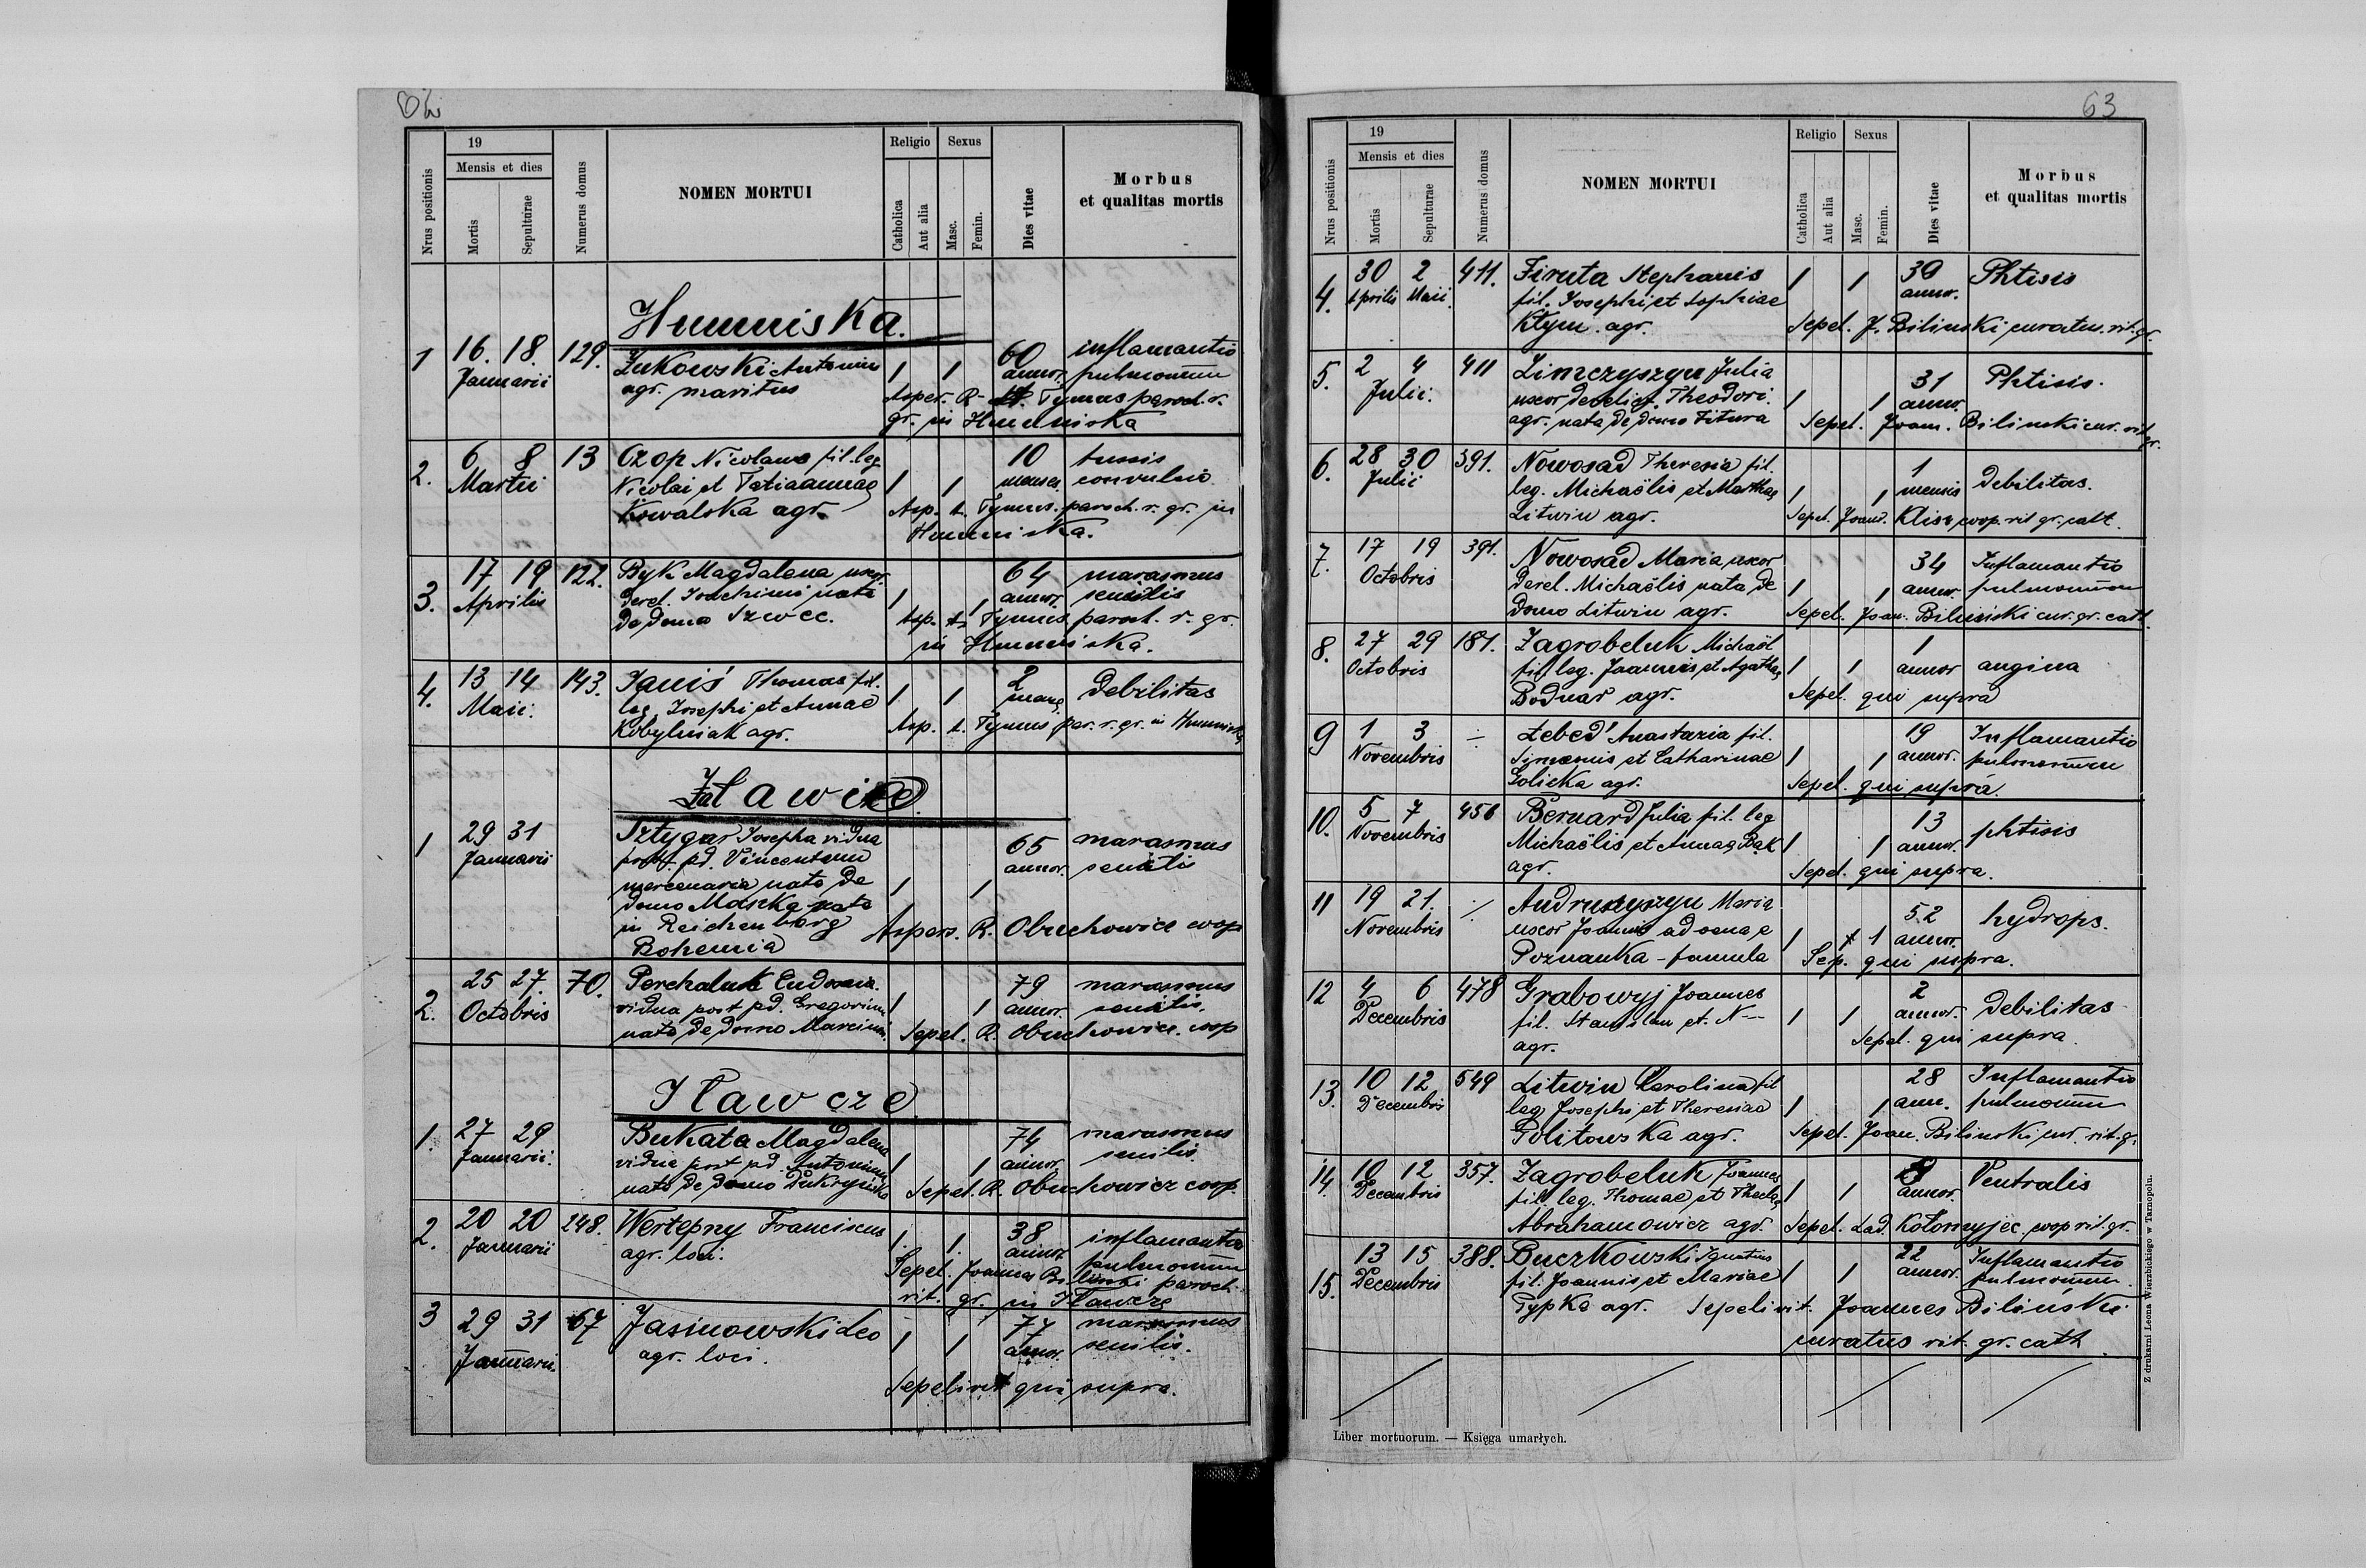 19
Mensis et dies
Nrus positionis
Mortis
Sepulturae
Numerus domus
NOMEN MORTUI
Religio
Sexus
Catholica
Aut alia
Masc.
Femin.
Dies vitae
Morbus
et qualitas mortis
Humniska.
1 16. 18. 129. Żukowski Antonius 1 1 60 inflamantio
Januarii agr. maritus annor. pulmonum
Asper. Tymus paroch. r.
gr. in Humniska
2. 6 8 13 Czop Nicolaus fil. leg. 10 tussis
Martii Nicolai et 1 1 convulsio
Kowalska agr. Asp. Tymus paroch. r. gr. in
Humniska.
3. 17 19 122. Byk Magdalena uxor 64 marasmus
Aprilis derel. Joachimi nata 1 1 annor. senilis
de domo Szwec. Asp. Tymus paroch. r. gr.
in Humniska.
4. 13 14 143. Janiś Thomas fil. 2 Debilitas
Maii. leg. Josephi et Annae 1 1
Kobylniak agr. Asp. Tymus par. r. gr. in Humniska
1 29 31 Sztygar Josepha vidua 65 marasmus
Januarii post. pd. Vincentium annor. senilis
mercenaria nata de 1 1
domo nata
in Reichenberg Aspers. R. Obuchowicz coop
Bohemia
2. 25 27. 70. Perchaluk 79 marasmus
Octobris vidua post pd. Gregorium 1 1 annor. senilis.
nata de domo Sepel. R. Obuchowicz. coop
Iławcze
1. 27 29 Bukata Magdalena 74 marasmus
Januarii. vidua post pd. Antonium 1 1 annor. senilis.
nata de domo Sepel. R. Obuchowicz coop.
2. 20 20 248. Wertepny Franciscus 1. 1. 38 inflamantio
Januarii agr. loci. annor. pulmonum
Sepel. Joannes Biliński paroch.
rit. gr. in Iławcze
3 29 31 67 Jasinowski Leo 1 1 77 marasmus
Januarii. agr. loci. annor. senilis.
Sepelivit qui supra.
63
19
Mensis et dies
Nrus positionis
Mortis
Sepulturae
Numerus domus
NOMEN MORTUI
Religio
Sexus
Catholica
Aut alia
Masc.
Femin.
Dies vitae
Morbus
et qualitas mortis
4. 30 2 411. Stephanis 1 1 30 Phtisis
Aprilis Maii. fil. Josephi et Sophiae annor.
Ktym. agr. Sepel. J. Bilinski curatu. rit. gr.
5. 2 4 411 Julia 31 Phtisis.
Julii. uxor derelict. Theodori. 1 1 annor.
agr. nata de domo Fitura Sepel. Joan. Bilinski cur. rit. gr.
6. 28 30 391. Nowosad Theresia fil. 1 Debilitas.
Julii leg. Michaëlis et Marthae 1 1 mensis
Litwin agr. Sepel. Joan. Klisz coop. rit gr. catt.
7. 17 19 391. Nowosad Maria uxor 34 Inflamantio
Octobris derel. Michaëlis nata de 1 1 annor. pulmonum
domo Litwin agr. Sepel. Joan. Biliński cur. gr. cath.
8. 27 29 181. Zagrobeluk Michaël 1
Octobris fil leg. Joannis et Agathae 1 1 annor angina
Bodnar agr. Sepel. qui supra
9 1 3 ÷ Łebed' Anastazia fil. 19 Inflamantio
Novembris Simeonis et Catharinae 1 1 annor. pulmonum
Golicka agr. Sepel. qui supra.
10. 5 7 456 Bernard Julia fil. leg 13 phtisis
Novembris Michaëlis et Annae Bąk 1 1 annor.
agr. Sepel. qui supra.
11 19 21. ÷ Andruszyszyn Maria 52 hydrops.
Novembris uxor Joannis advenae 1 1 annor.
Poznanka - famula Sep. qui supra.
12 4 6 478 Grabowyj Joannes 2
Decembris fil. Stanislau et. N-- 1 1 annor. Debilitas
agr. Sepel. qui supra.
13. 10 12 549 Litwin Carolina fil 28 Inflamantio
Decembris leg Josephi et Theresiae 1 1 ann. pulmonum
Politowska agr. Sepel. Joan. Bilinski cur. rit. gr.
14. 10 12 357. Zagrobeluk Joannes Ventralis
Decembris fil leg. Thomae et Theclae 1 1 annor.
Abrahamowicz agr. Sepel. Lad. Kołomyjec coop rit. gr.
15. 13 15 388. Buczkowski Ignatius 22 Inflamantio
Decembris fil. Joannis et Mariae 1 1 annor. pulmonum.
Pypka agr. Sepelivit. Joannes Biliński
curatus rit. gr. cath.
Liber mortuorum. — Księga umarłych.
Z drukarni Leona Wierzbickiego w Tarnopolu.